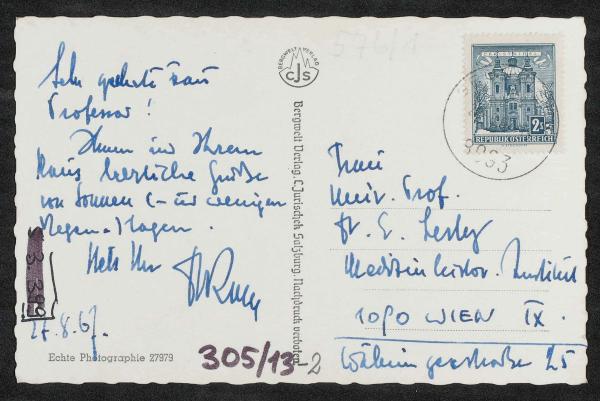 Sehr geehrte Frau
Professor !
Ihnen und Ihrem
Haus herzliche Grüße
von Sonnen (- und wenigen
Regen-) tagen.
Stets Ihr
27.8.67.
Echte Photographie 27979
305/13-2
576/1
BERGWELT VERLAG
CJS
Bergwelt Verlag, C. Jurischek Salzburg. Nachdruck verboten
CHRISTKINDL
2.-
REPUBLIK ÖSTERREICH
8993
Frau
Univ. Prof.
Dr. E. Lesky
Medizinhistor. Institut
1090 WIEN IX.
Währingerstraße 25